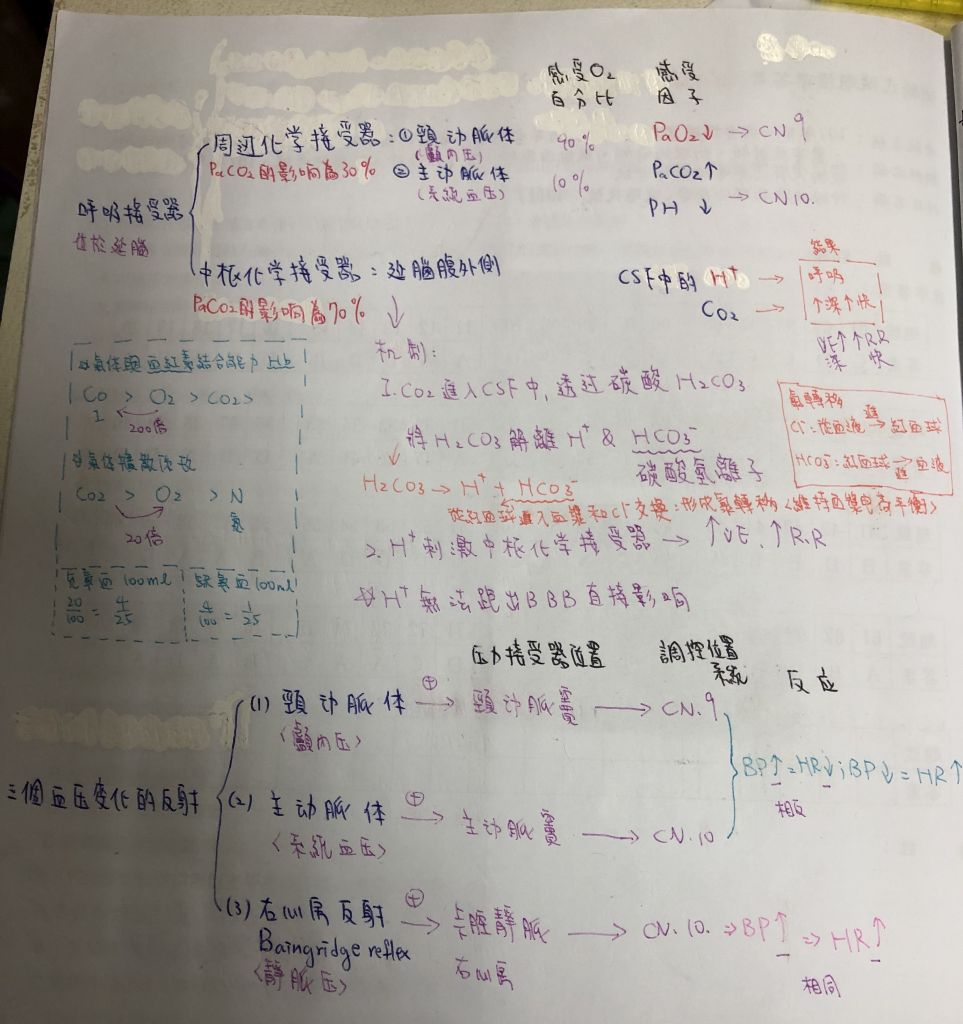 感受O₂ 感受
百分比 因子
周边化学接受器：① 頸动脈体 90% PaO₂↓ → CN 9
(顱內压)
PaCO₂的影响為30% ② 主动脈体 10% PaCO₂↑
(系統血压) PH ↓ → CN 10.
呼吸接受器
位於延腦
中枢化学接受器：延腦腹外側
PaCO₂的影响為70%
結果
CSF中的 H⁺ → 呼吸
CO₂ → ↑深↑快
VE↑ ↑RR
深 快
机制：
1. CO₂進入CSF中，透过碳酸H₂CO₃
將H₂CO₃解離H⁺ & HCO₃⁻
碳酸氫離子
H₂CO₃ → H⁺ + HCO₃⁻
從紅血球進入血漿和Cl⁻交換：形成氯轉移<維持血漿电荷平衡>
2. H⁺刺激中枢化学接受器 → ↑VE, ↑R.R
H⁺無法跑出BBB直接影响
氯轉移
Cl⁻：從血液 進→ 紅血球
HCO₃⁻：紅血球 進→ 血液
氣体跟血紅素結合能力
CO > O₂ > CO₂>
1 200倍
氣体擴散
CO₂ > O₂ > N
20倍 氮
充氧血100ml 缺氧血100ml
20/100 = 4/25 4/100 = 1/25
压力接受器位置 調控位置
系統 反应
三個血压变化的反射
(1) 頸动脈体 ⊕→ 頸动脈竇 → CN. 9
<顱內压>
BP↑=HR↓；BP↓=HR↑
相反
(2) 主动脈体 ⊕→ 主动脈竇 → CN. 10
<系統血压>
(3) 右心房反射 ⊕→ 上腔靜脈 → CN. 10. ⇒BP↑ ⇒ HR↑
Baingridge reflex 右心房
<靜脈压> 相同